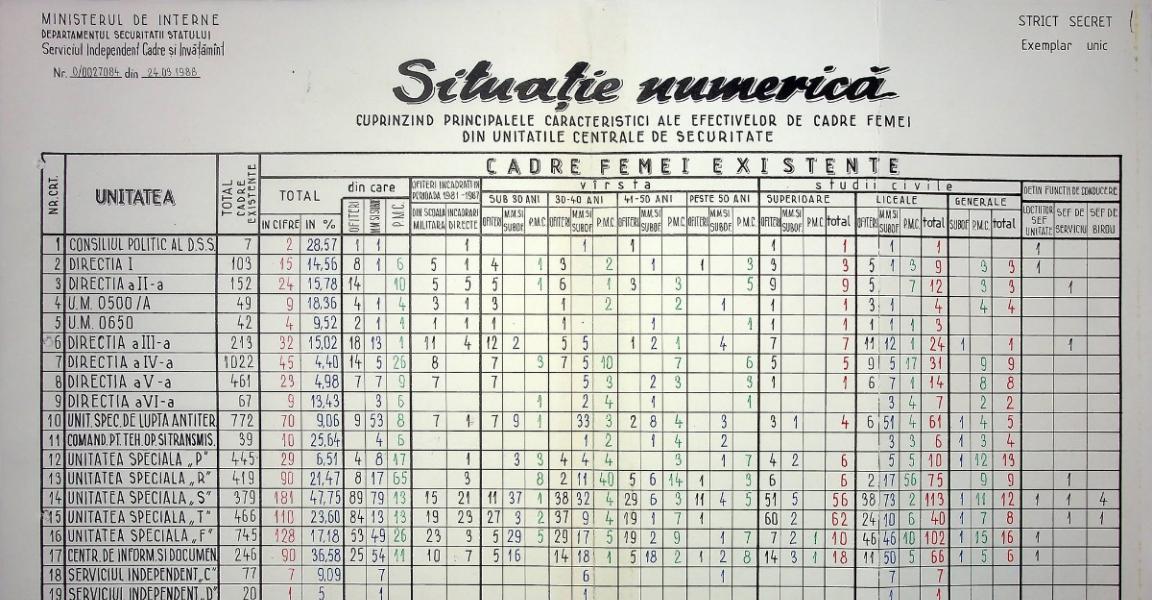 MINISTERUL DE INTERNE
DEPARTAMENTUL SECURITATII STATULUI
Serviciul Independent Cadre și Invățămînt
Nr. 0/0027084 din 24.09.1988
STRICT SECRET
Exemplar unic
Situație numerică
CUPRINZIND PRINCIPALELE CARACTERISTICI ALE EFECTIVELOR DE CADRE FEMEI
DIN UNITATILE CENTRALE DE SECURITATE
NR.CRT. UNITATEA TOTAL CADRE EXISTENTE CADRE FEMEI EXISTENTE
TOTAL din care OFITERI INCADRATI IN PERIOADA 1981-1987 vîrsta studii civile DETIN FUNCTII DE CONDUCERE
SUB 30 ANI 30-40 ANI 41-50 ANI PESTE 50 ANI SUPERIOARE LICEALE GENERALE
IN CIFRE IN % OFITERI MM SI SUBOF P.M.C. DIN SCOALA MILITARA INCADRARI DIRECTE OFITERI M.M.SI SUBOF. P.M.C. OFITERI M.M.SI SUBOF. P.M.C. OFITERI M.M.SI SUBOF. P.M.C. OFITERI M.M.SI SUBOF. P.M.C. OFITERI M.M.SI SUBOF. P.M.C. total OFITERI M.M.SI SUBOF. P.M.C. total SUBOF. P.M.C. total LOCTIITOR SEF UNITATE SEF DE SERVICIU SEF DE BIROU
1 CONSILIUL POLITIC AL D.S.S. 7 2 28,57 1 1 1 1 1 1 1 1 1 1
2 DIRECTIA I 103 15 14,56 8 1 6 5 1 4 1 3 2 1 1 3 3 3 5 1 3 9 3 3 1
3 DIRECTIA a II-a 152 24 15,78 14 10 5 5 5 1 6 1 3 3 5 9 9 5 7 12 3 3 1
4 U.M. 0500/A 49 9 18,36 4 1 4 3 1 3 1 2 2 1 1 1 3 1 4 4 4
5 U.M. 0650 42 4 9,52 2 1 1 1 1 1 1 1 1 1 1 1 1 1 3
6 DIRECTIA a III-a 213 32 15,02 18 13 1 11 4 12 2 5 5 1 2 1 4 7 7 11 12 1 24 1 1 1
7 DIRECTIA a IV-a 1022 45 4,40 14 5 26 8 7 3 7 5 10 7 6 5 5 9 5 17 31 9 9
8 DIRECTIA a V-a 461 23 4,98 7 7 9 7 7 5 3 2 3 3 1 1 6 7 1 14 8 8
9 DIRECTIA a VI-a 67 9 13,43 3 6 1 2 4 1 1 3 4 7 2 2
10 UNIT. SPEC. DE LUPTA ANTITER. 772 70 9,06 9 53 8 7 1 7 9 1 33 3 2 8 4 3 3 1 4 6 51 4 61 1 4 5
11 COMAND. PT. TEH. OP. SI TRANSMIS. 39 10 25,64 4 6 1 2 1 4 2 3 3 6 1 3 4
12 UNITATEA SPECIALA „P" 445 29 6,51 4 8 17 1 3 3 4 4 4 3 1 7 4 2 6 5 5 10 1 12 13
13 UNITATEA SPECIALA „R" 419 90 21,47 8 17 65 3 8 2 11 40 5 6 14 1 3 6 6 2 17 56 75 9 9 1
14 UNITATEA SPECIALA „S" 379 181 47,75 89 79 13 15 21 11 37 1 38 32 4 29 6 3 11 4 5 51 5 56 38 73 2 113 1 11 12 1 1 4
15 UNITATEA SPECIALA „T" 466 110 23,60 84 13 13 19 23 27 3 2 37 9 4 19 1 7 1 60 2 62 24 10 6 40 1 7 8 1 1
16 UNITATEA SPECIALA „F" 745 128 17,18 53 49 26 23 3 5 29 5 29 17 5 19 2 9 1 7 7 2 1 10 46 46 10 102 1 15 16 1
17 CENTR. DE INFORM. SI DOCUMEN. 246 90 36,58 25 54 11 10 7 5 16 14 18 1 5 18 2 1 2 8 14 3 1 18 11 50 5 66 1 5 6 1
18 SERVICIUL INDEPENDENT „C" 77 7 9,09 7 6 1 7 7
19 SERVICIUL INDEPENDENT „D" 20 1 5 1 1 1 1